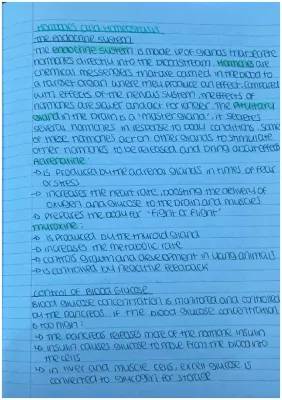 Hormones and Homeostasis
The endocrine system
The endocrine system is made up of glands that secrete
hormones directly into the bloodstream. Hormones are
chemical messengers that are carried in the blood to
a target organ where they produce an effect. Compared
with effects of the nervous system, the effects of
hormones are slower and act for longer. The pituitary
gland in the brain is a "master gland". It secretes
several hormones in response to body conditions. Some
of these hormones act on other glands to stimulate
other hormones to be released and bring about effects
Adrenaline:
→ is produced by the adrenal glands in times of fear
or stress
→ increases the heart rate, boosting the delivery of
oxygen and glucose to the brain and muscles
→ Prepares the body for "fight or flight"
Thyroxine:
→ is produced by the thyroid gland
→ increases the metabolic rate
→ controls growth and development in young animals
→ is controlled by negative feedback
Control of Blood Glucose
Blood glucose concentration is monitored and controlled
by the pancreas. If the blood glucose concentration
is too high:
→ the pancreas releases more of the hormone insulin
→ insulin causes glucose to move from the blood into
the cells
→ in liver and muscle cells, excess glucose is
converted to glycogen for storage